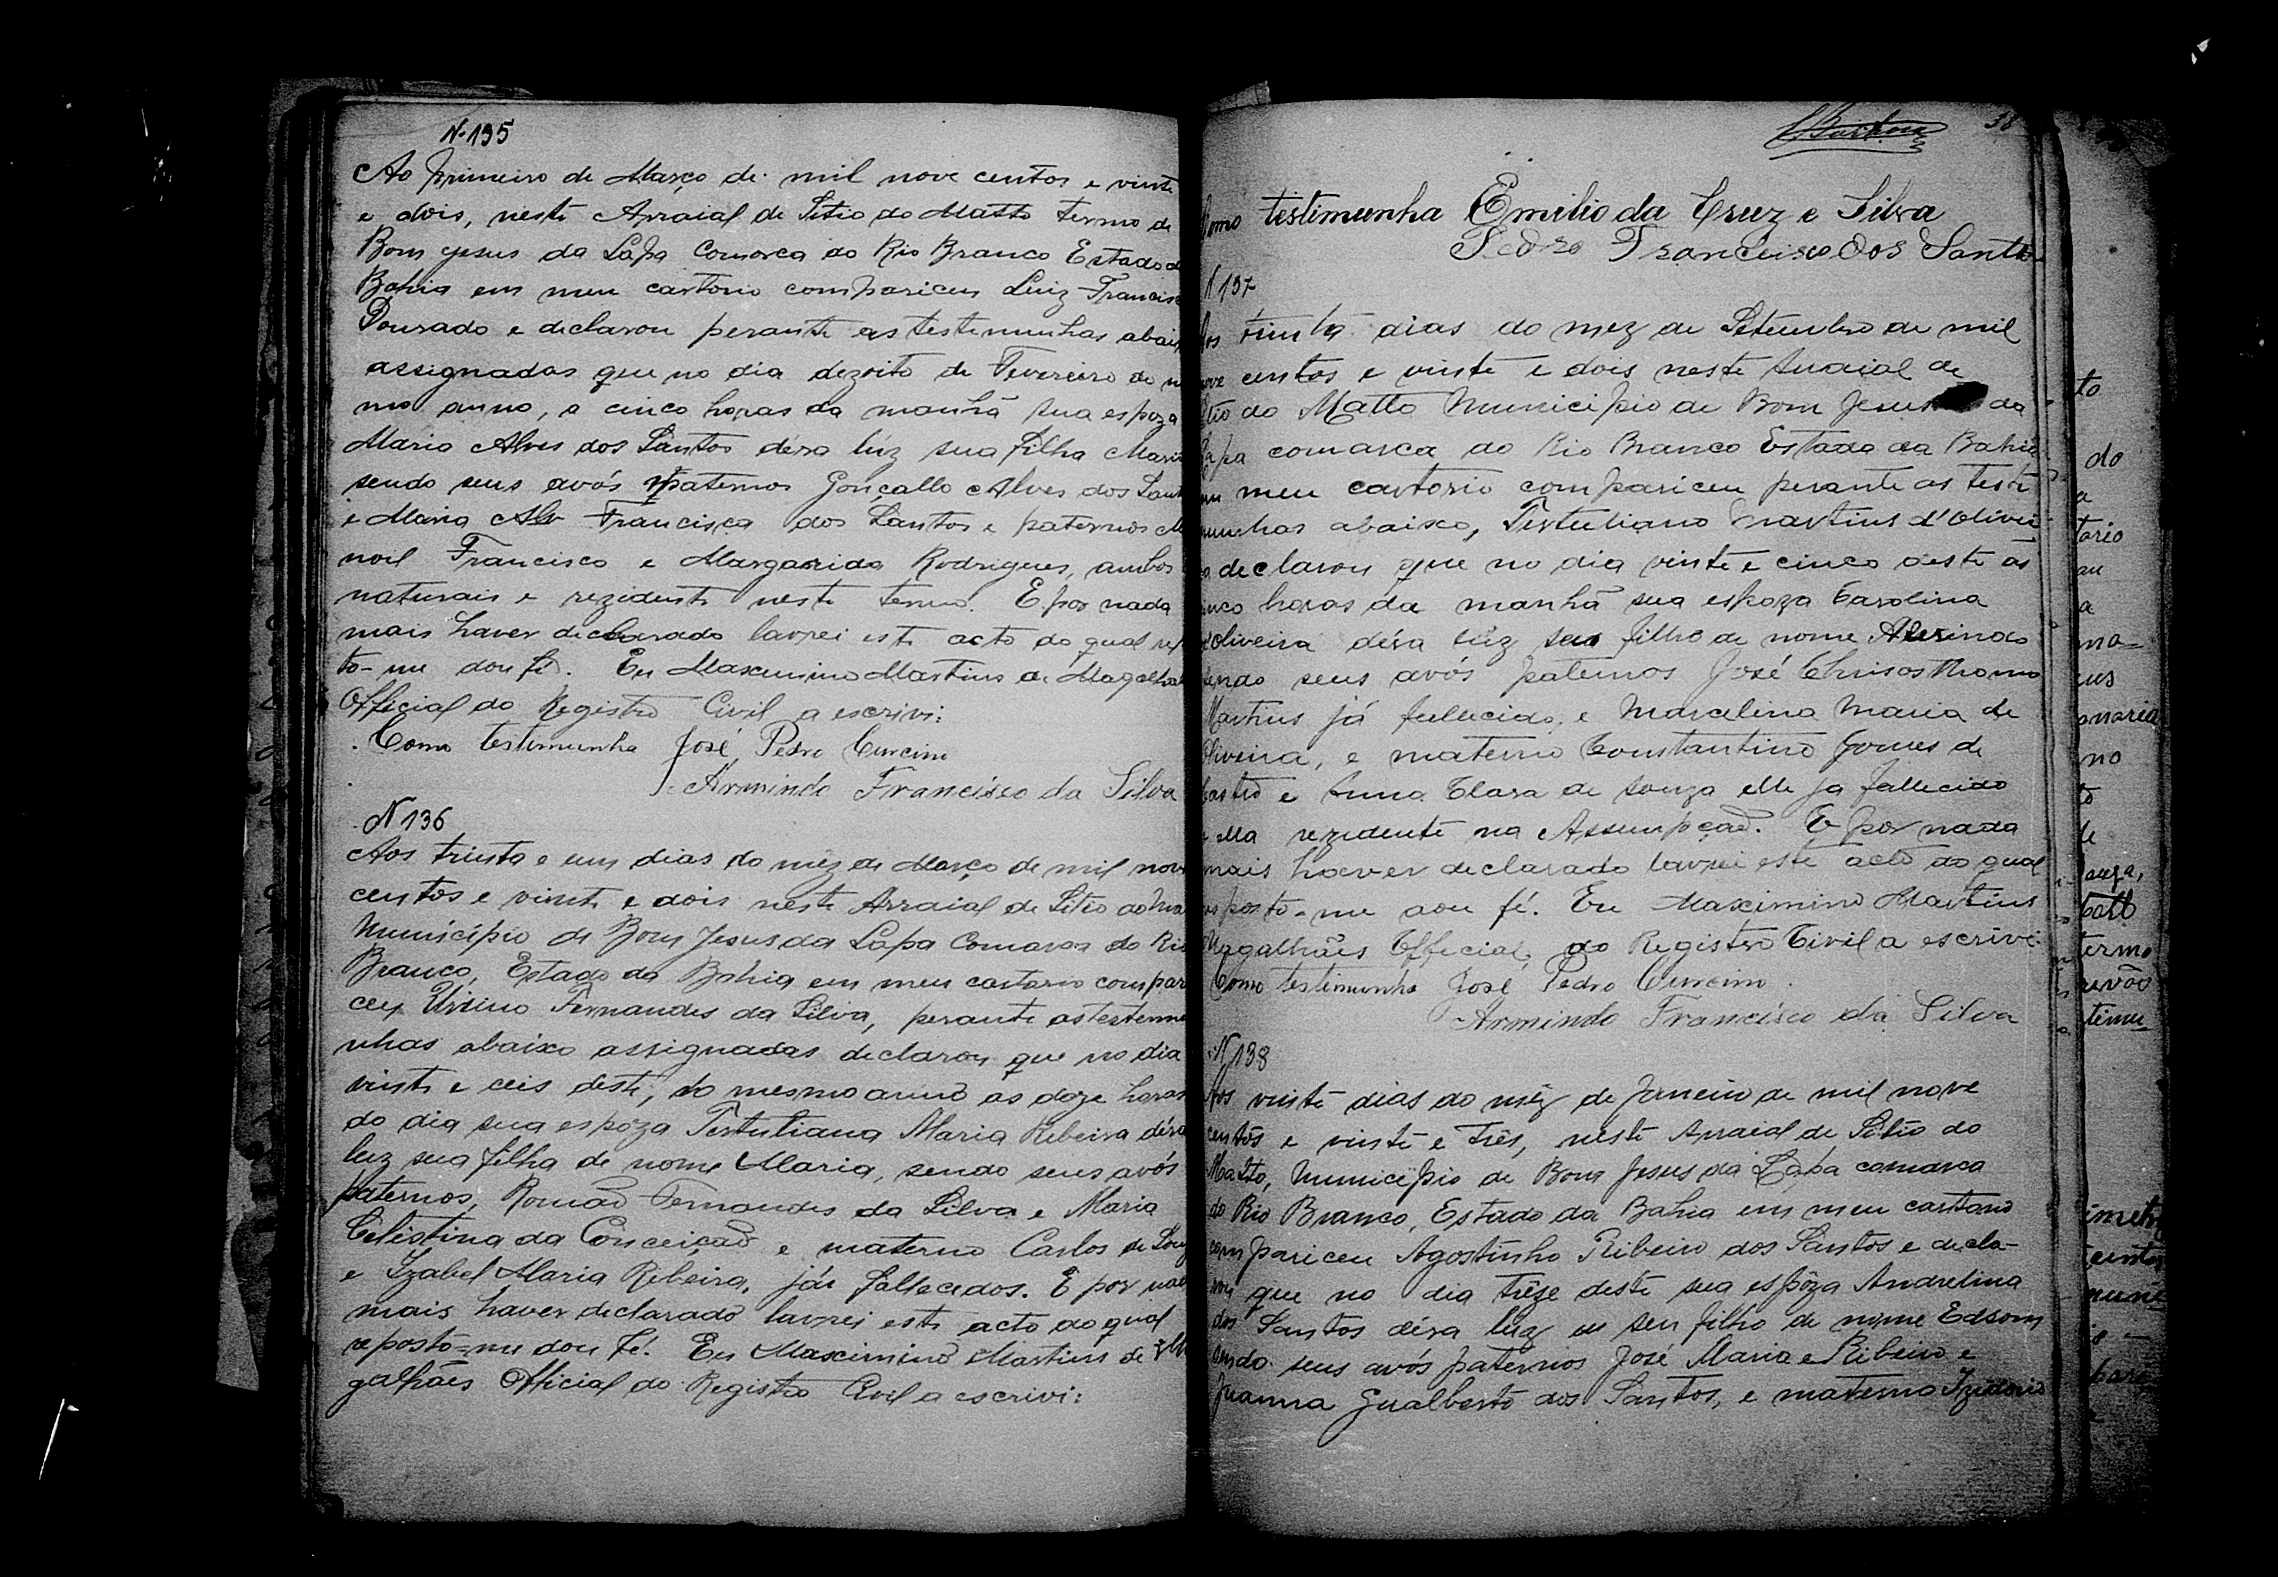 N. 135
Ao primeiro de Março de mil nove centos e vinte
e dois, neste Arraial de Sitio do Matto termo de
Bom Jesus da Lapa Comarca do Rio Branco Estado da
Bahia em meu cartorio compariceu Luiz Francisc
Dourado e declarou perante as testemunhas abaix
assignadas que no dia dezoito de Fevereiro do
mo anno, a cinco horas da manhã sua espoza
Maria Alves dos Santos déra lúz sua filha Maria
sendo seus avós paternos Gonçallo Alves dos Sant
e Maria Francisca dos Santos e paternos Ma
noel Francisco e Margarida Rodrigues, ambos
naturais e rezidents neste termo. E por nada
mais haver declarado lavrei este acto do qual rep
to-me dou fé. Eu Maximino Martins de Magalhã
Official do Registro Civil a escrivi:
Como testemunha José Pedro Curcino
Armindo Francisco da Silva
N 136
Aos trinta e um dias do mêz de Março de mil nove
centos e vinte e dois neste Arraial de Sitio do Ma
Município de Bom Jesus da Lapa Comarca do Rio
Branco, Estado da Bahia em meu cartorio compar
ceu Ursino Fernandes da Silva, perante as testemu
nhas abaixo assignadas declarou que no dia
vinte e ceis deste, do mesmo anno as doze horas
do dia sua espôza Tertuliana Maria Ribeira déra
luz sua filha de nome Maria, sendo seus avós
paternos, Romão Fernandes da Silva e Maria
Celestina da Conceição e materno Carlos de Souz
e Izabel Maria Ribeira, já fallecedos. E por nad
mais haver declarado lavrei este acto do qual
reposto-me dou fé. Eu Maximino Martins de Ma
galhães Official do Registro Civil a escrivi:
38
Como testimunha Emilio da Cruz e Silva
Pedro Francisco dos Santos
N 137
Aos trinta dias do mez de Setembro de mil
nove centos e vinte e dois neste Arraial de
Sitio do Matto Municipio de Bom Jesus da
Lapa comarca do Rio Branco Estado da Bahia
em meu cartorio compariceu perante as teste
munhas abaixo, Tertuliano Martins d'Olivei
ra declarou que no dia vinte e cinco deste ás
cinco horas da manhã sua espoza Carolina
d'Oliveira déra lúz seu filho de nome
sendo seus avós paternos José Chrisosthomo
Martins já fallecido, e Marcelina Maria de
Oliveira, e materno Constantino Gomes de
Castro e Anna Clara de Souza elle já fallecido
e ella rezidente na Assumpção. E por nada
mais haver declarado lavrei este acto do qual
reposto-me dou fé. Eu Maximino Martins
Magalhães Official, do Registro Civil a escrivi.
Como testimunha José Pedro Curcino
Armindo Francisco da Silva
N 138
Aos vinte dias do mêz de Janeiro de mil nove
centos e vinte e três, neste Arraial de Sitio do
Matto, Municipio de Bom Jesus da Lapa comarca
do Rio Branco, Estado da Bahia em meu cartorio
compariceu Agostinho Ribeiro dos Santos e decla-
rou que no dia trêze deste sua espôza Andrelina
dos Santos déra lúz seu filho de nome Edsom
sendo seus avós paternos José Maria e Ribeiro e
Juanna Gualberto dos Santos, e materno Izidorio